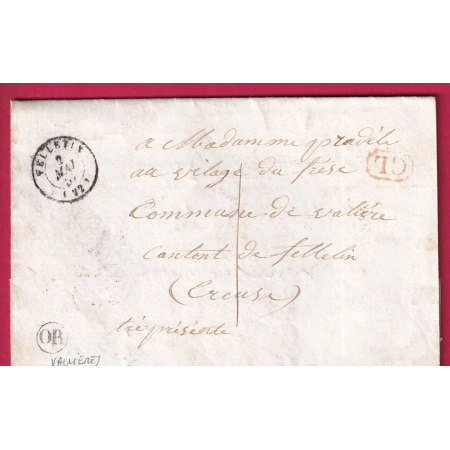 FELLETIN
2
MAI
(22)
CL
a Madamme pradèle
au vilage du frése
Commune de valiére
cantont de fellelin
(Creuse)
tré présente
1
OR
VALLIÈRES